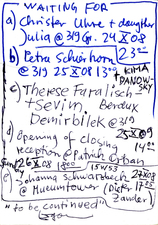 WAITING FOR
a) Christer Uhre + daughter
Julia @ 319 gr. 24 X 08
23 00
b) Petra Schierhorn
@ 319 25 X 08 13 00
KIMA
PANOWSKY
c) Therese Faralisch
+ Sevim Berdux
Demirbilek @ 319
25 X 08
d) Opening or closing 14 00
reception @ Patrick Urban
Sunday 26 X 08 1800
e) Johanna Schwarzbeck 27 X 08
@ Museumtower (Dirk
Zander)
"to be continued"